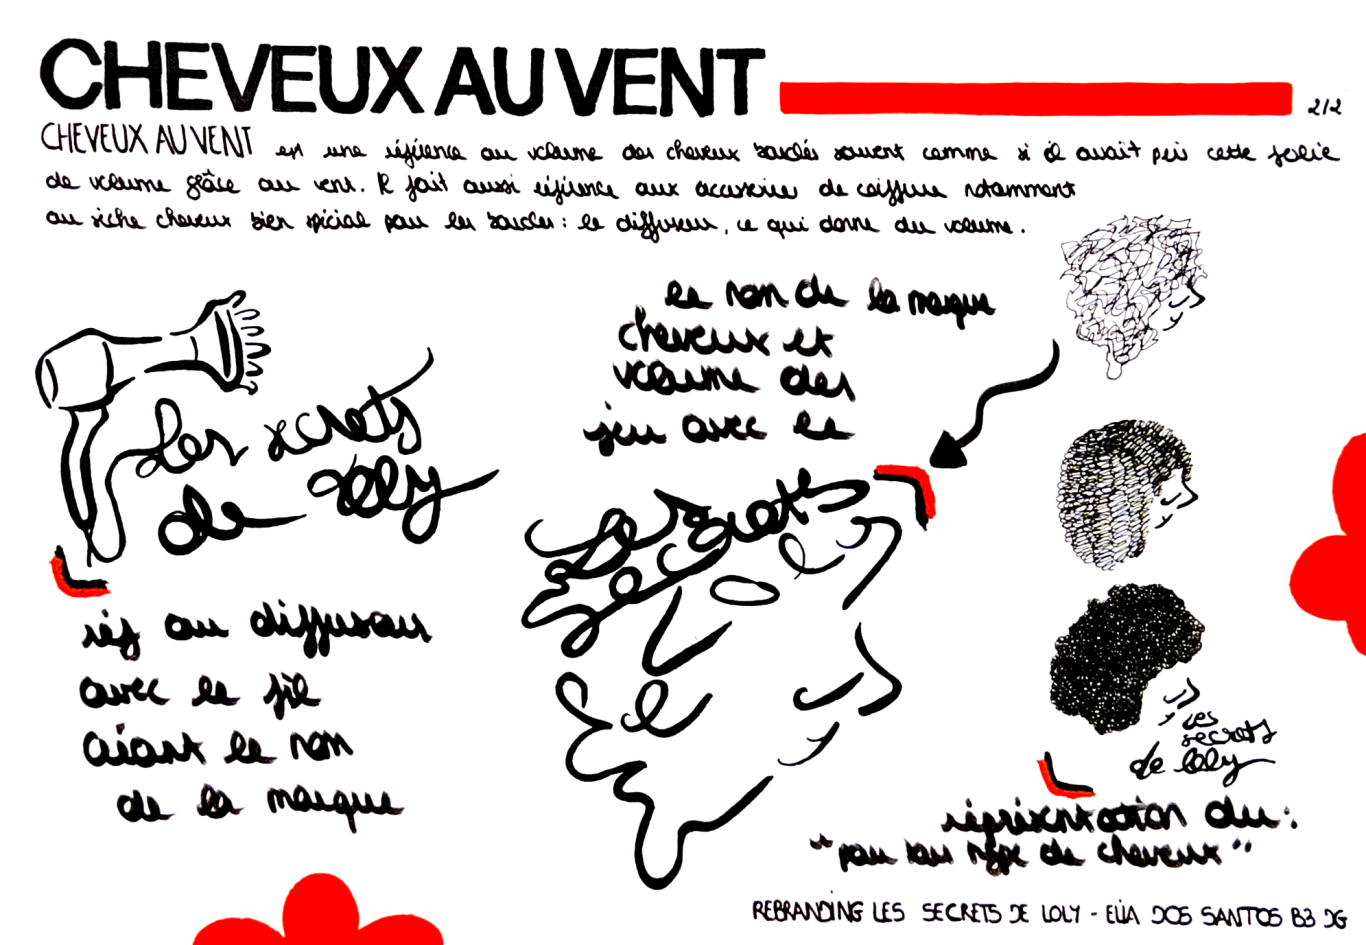 CHEVEUX AU VENT
2/2
CHEVEUX AU VENT est une référence au volume des cheveux bouclés souvent comme si il avait pris cette forme
de volume grâce au vent. Il fait aussi référence aux accessoires de coiffure notamment
au sèche cheveux bien spécial pour les boucles : le diffuseur, ce qui donne du volume.
Les secrets
de loly
réf au diffuseur
avec le fil
aiant le nom
de la marque
le nom de la marque
cheveux et
volume des
jeu avec le
Les secrets
de
Les
secrets
de loly
représentation du :
"pour tous type de cheveux"
REBRANDING LES SECRETS DE LOLY - ELÌA DOS SANTOS B3 DG